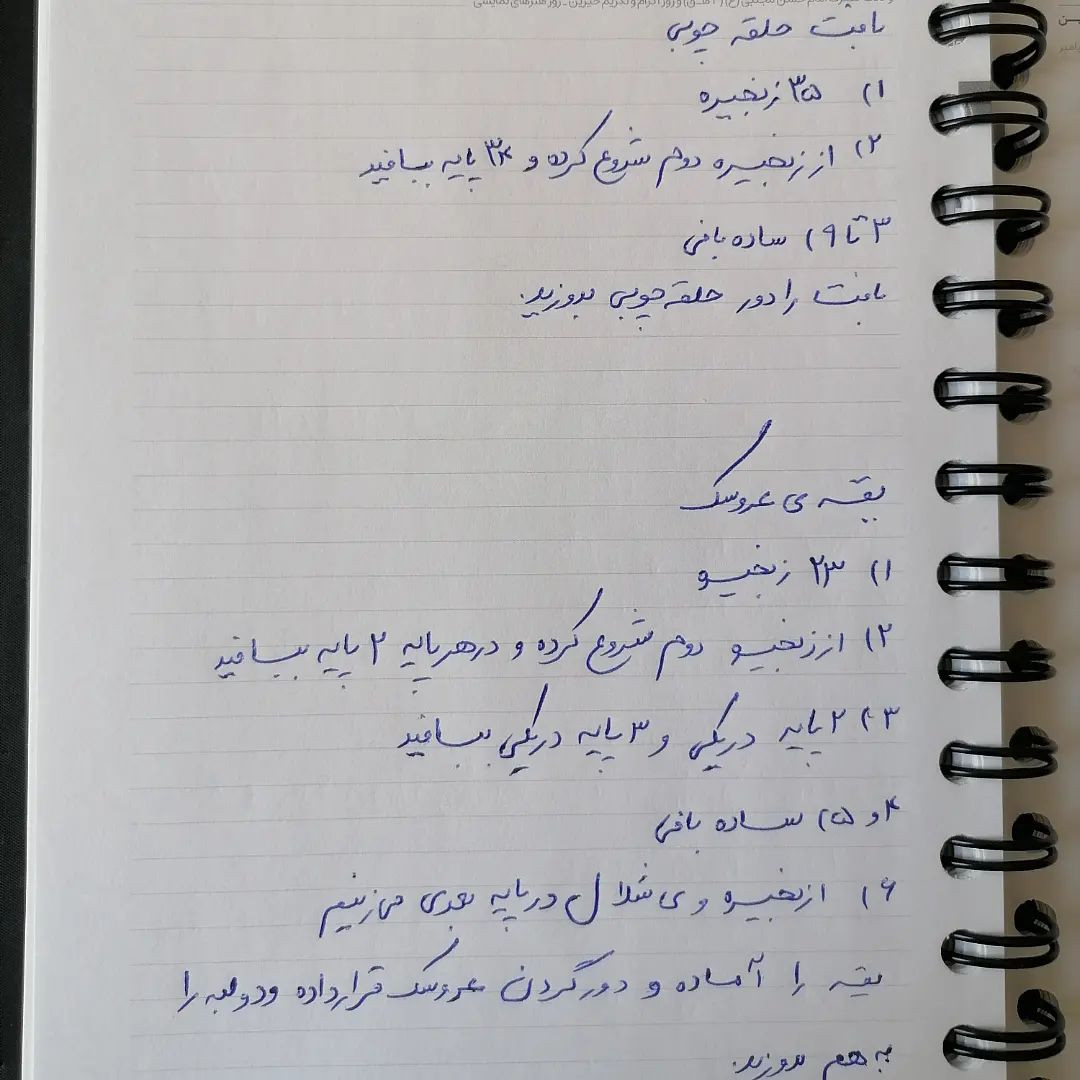 بافت حلقه چوبی
۱) ۳۵ زنجیره
۲) از زنجیره دوم شروع کرده و ۳۴ پایه ببافید
۳ تا ۹) ساده بافی
بافت را دور حلقه چوبی بدوزید.
یقه ی عروسک
۱) ۲۳ زنجیره
۲) از زنجیره دوم شروع کرده و در هر پایه ۲ پایه ببافید
۳) ۲ پایه در یکی و ۳ پایه در یکی ببافید
۴ و ۵) ساده بافی
۶) ۱ زنجیره و ی شلال در پایه بعدی می زنیم
یقه را آماده و دور گردن عروسک قرار داده و دو لبه را
به هم بدوزید.